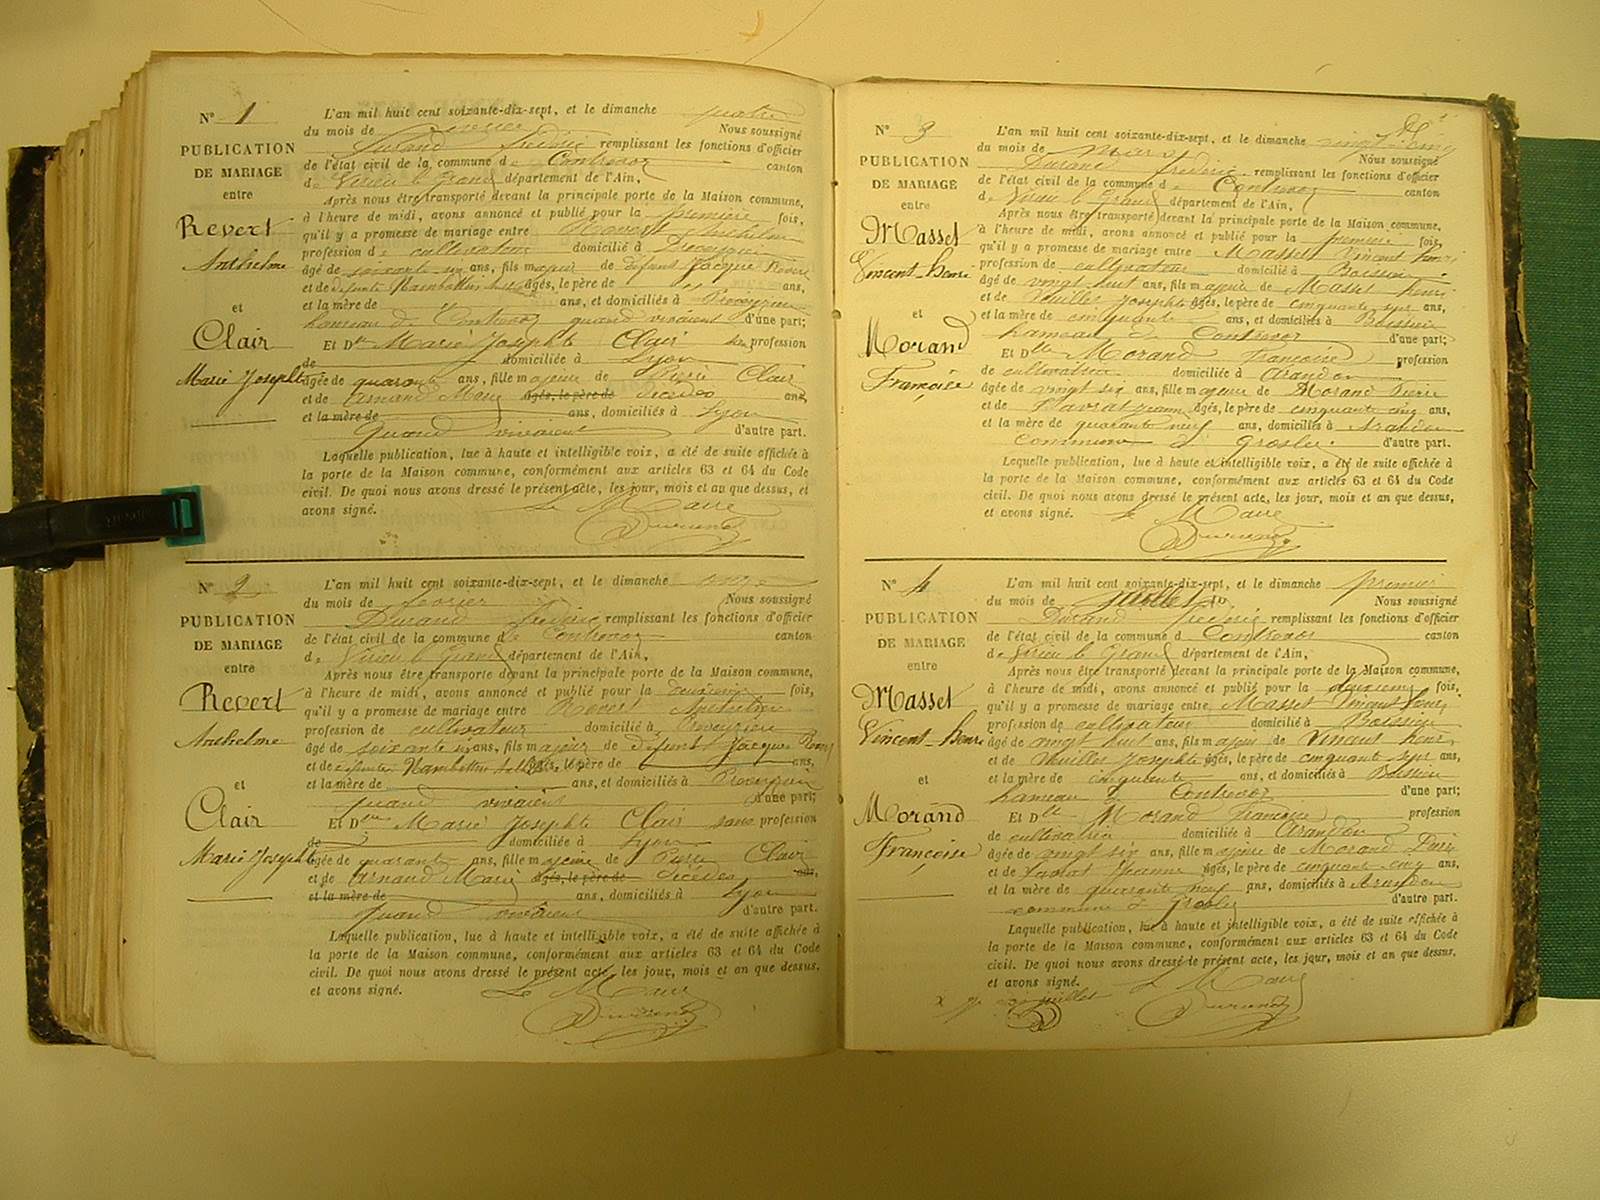 N° 1
PUBLICATION
DE MARIAGE
entre
Revert
Anthelme
et
Clair
Marie Josephte
L'an mil huit cent soixante-dix-sept, et le dimanche quatre
du mois de février Nous soussigné
Durand frédéric remplissant les fonctions d'officier
de l'état civil de la commune de Contrevoz canton
de Virieu le Grand département de l'Ain,
Après nous être transporté devant la principale porte de la Maison commune,
à l'heure de midi, avons annoncé et publié pour la première fois,
qu'il y a promesse de mariage entre Revert Anthelme
profession de cultivateur domicilié à
âgé de soixante un ans, fils majeur de défunt Jacque Revert
et de défunte âgés, le père de " ans,
et la mère de " ans, et domiciliés à
hameau de Contrevoz quand vivaient d'une part;
Et Dlle Marie Josephte Clair profession
de domiciliée à Lyon
âgée de quarante ans, fille majeure de Pierre Clair
et de Arnaud Marie âgés, le père de décédés ans,
et la mère de ans, domiciliés à Lyon
quand vivaient d'autre part.
Laquelle publication, lue à haute et intelligible voix, a été de suite affichée à
la porte de la Maison commune, conformément aux articles 63 et 64 du Code
civil. De quoi nous avons dressé le présent acte, les jour, mois et an que dessus, et
avons signé. Le Maire
Durand
N° 2
PUBLICATION
DE MARIAGE
entre
Revert
Anthelme
et
Clair
Marie Josephte
L'an mil huit cent soixante-dix-sept, et le dimanche onze
du mois de fevrier Nous soussigné
Durand frédéric remplissant les fonctions d'officier
de l'état civil de la commune de Contrevoz canton
de Virieu le Grand département de l'Ain,
Après nous être transporté devant la principale porte de la Maison commune,
à l'heure de midi, avons annoncé et publié pour la deuxieme fois,
qu'il y a promesse de mariage entre Revert Anthelme
profession de cultivateur domicilié à
âgé de soixante un ans, fils majeur de défunt Jacque Revert
et de défunte âgés, le père de ans,
et la mère de ans, et domiciliés à
quand vivaient d'une part;
Et Dlle Marie Josephte Clair sans profession
de domiciliée à Lyon
âgée de quarante ans, fille majeure de Pierre Clair
et de Arnaud Marie âgés, le père de décédés ans,
et la mère de ans, domiciliés à Lyon
quand vivaient d'autre part.
Laquelle publication, lue à haute et intelligible voix, a été de suite affichée à
la porte de la Maison commune, conformément aux articles 63 et 64 du Code
civil. De quoi nous avons dressé le présent acte, les jour, mois et an que dessus,
et avons signé. Le Maire
Durand
N° 3
PUBLICATION
DE MARIAGE
entre
Masset
Vincent-Henri
et
Morand
Françoise
L'an mil huit cent soixante-dix-sept, et le dimanche vingt cinq
du mois de mars Nous soussigné
Durand frédéric remplissant les fonctions d'officier
de l'état civil de la commune de Contrevoz canton
de Virieu le Grand département de l'Ain,
Après nous être transporté devant la principale porte de la Maison commune,
à l'heure de midi, avons annoncé et publié pour la première fois,
qu'il y a promesse de mariage entre Masset Vincent henri
profession de cultivateur domicilié à Boissieu
âgé de vingt huit ans, fils majeur de Masset henri
et de Josephte âgés, le père de cinquante sept ans,
et la mère de cinquante ans, et domiciliés à Boissieu
hameau de Contrevoz d'une part;
Et Dlle Morand françoise profession
de cultivatrice domiciliée à Arandon
âgée de vingt six ans, fille majeure de Morand Pierre
et de Jeanne âgés, le père de cinquante cinq ans,
et la mère de quarante neuf ans, domiciliés à Arandon
commune de Groslée d'autre part.
Laquelle publication, lue à haute et intelligible voix, a été de suite affichée à
la porte de la Maison commune, conformément aux articles 63 et 64 du Code
civil. De quoi nous avons dressé le présent acte, les jour, mois et an que dessus,
et avons signé. Le Maire
Durand
N° 4
PUBLICATION
DE MARIAGE
entre
Masset
Vincent-Henri
et
Morand
Françoise
L'an mil huit cent soixante-dix-sept, et le dimanche premier
du mois de juillet Nous soussigné
Durand frédéric remplissant les fonctions d'officier
de l'état civil de la commune d Contrevoz canton
de Virieu le Grand département de l'Ain,
Après nous être transporté devant la principale porte de la Maison commune,
à l'heure de midi, avons annoncé et publié pour la deuxieme fois,
qu'il y a promesse de mariage entre Masset Vincent henri
profession de cultivateur domicilié à Boissieu
âgé de vingt huit ans, fils majeur de Vincent henri
et de Josephte âgés, le père de cinquante sept ans,
et la mère de cinquante ans, et domiciliés à Boissieu
hameau de Contrevoz d'une part;
Et Dlle Morand françoise profession
de cultivatrice domiciliée à Arandon
âgée de vingt six ans, fille majeure de Morand Pierre
et de Jeanne âgés, le père de cinquante cinq ans,
et la mère de quarante neuf ans, domiciliés à Arandon
commune de Groslée d'autre part.
Laquelle publication, lue à haute et intelligible voix, a été de suite affichée à
la porte de la Maison commune, conformément aux articles 63 et 64 du Code
civil. De quoi nous avons dressé le présent acte, les jour, mois et an que dessus,
et avons signé. Le Maire
juillet
Durand